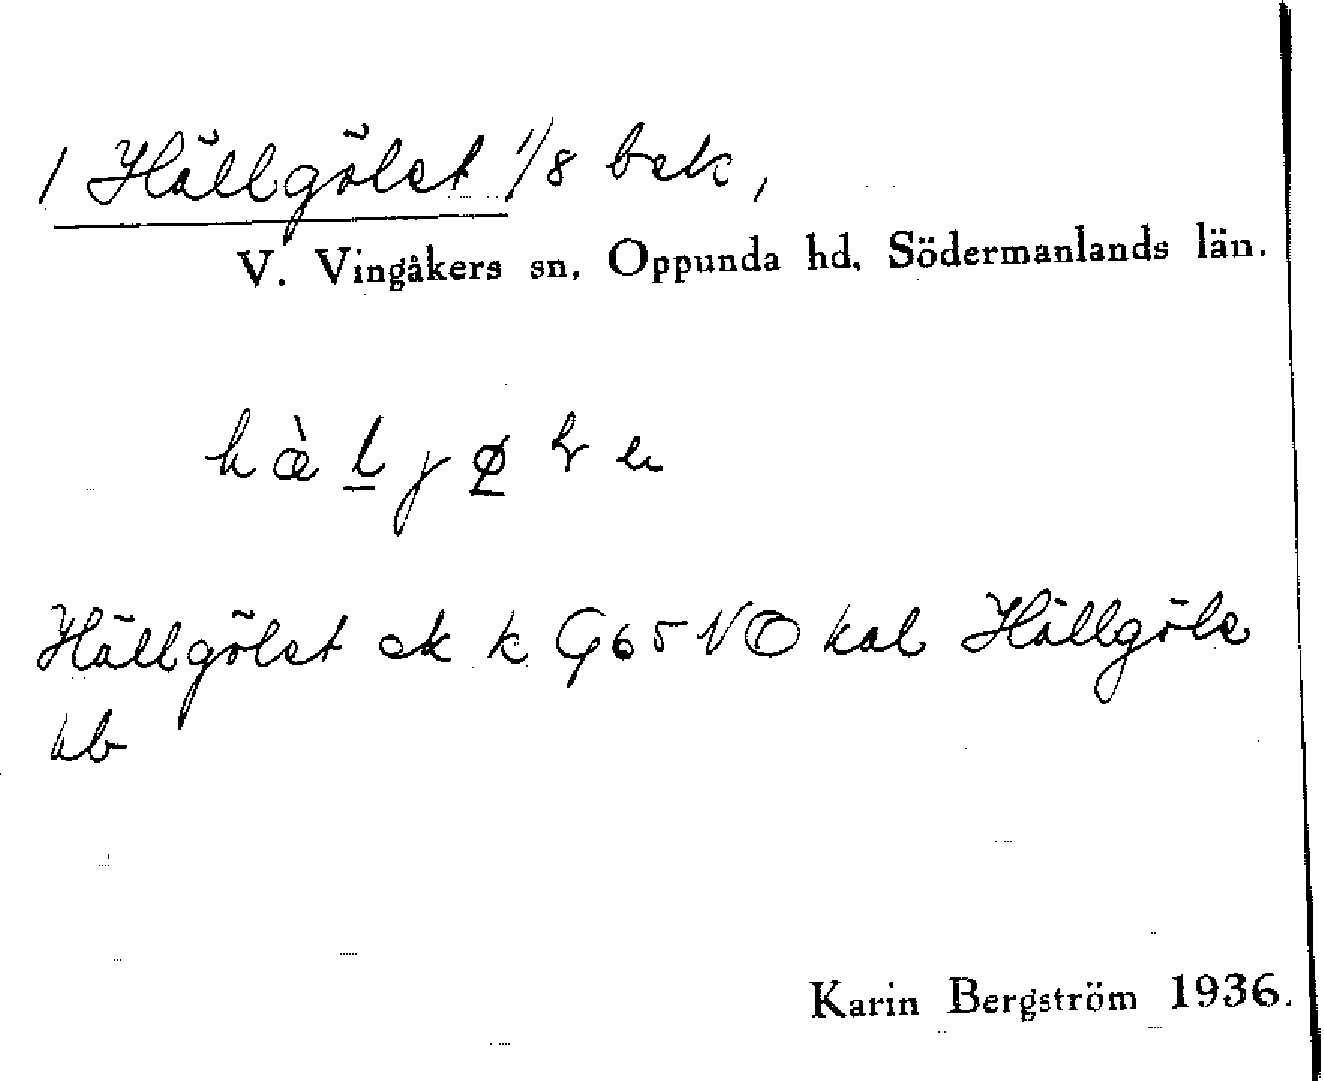 / Hällgölet 1/8 bek,
V. Vingåkers sn, Oppunda hd, Södermanlands län.
hæ̀l̲jø̲
Hällgölet ek k G65 NO kal Hällgöle
Karin Bergström 1936.